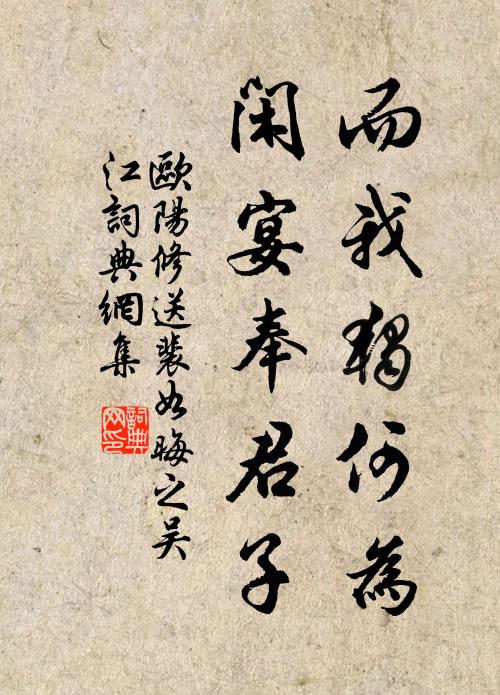 而我獨何為
閑宴奉君子
歐陽修送裴如晦之吳
江詞典網集
詞典
網印